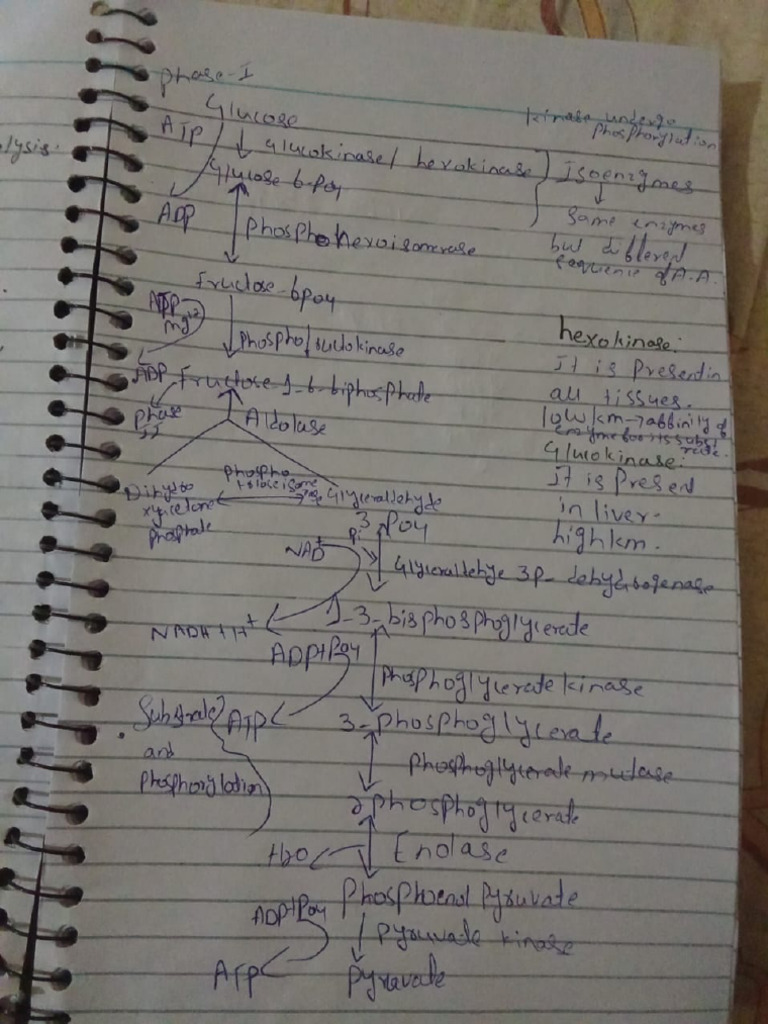 lysis.
Phase-I
Glucose
kinase undergo
phosphorylation
ATP
Glucokinase/ hexokinase
Isoenzymes
Glucose 6-PO4
ADP
same enzymes
but different
sequence of A.A.
Phosphohexoisomerase
Fructose-6PO4
ATP
mg+2
Phosphofructokinase
hexokinase:
It is Present in
all tissues.
low km → affinity of
ADP
Fructose-1-6-biphosphate
Phase
II
Aldolase
Glucokinase:
It is Present
in liver.
high km.
Dihydro
xyacetone
phosphate
phospho
Glyceraldehyde
3-PO4
Pi
NAD+
Glyceraldehyde 3P-dehydrogenase
NADH+H+
1-3-bisphosphoglycerate
ADP+PO4
Phosphoglycerate kinase
Substrate
and
Phosphorylation
ATP
3-phosphoglycerate
Phosphoglycerate mutase
2phosphoglycerate
H2O
Enolase
Phosphoenol Pyruvate
ADP+PO4
Pyruvate kinase
ATP
Pyruvate